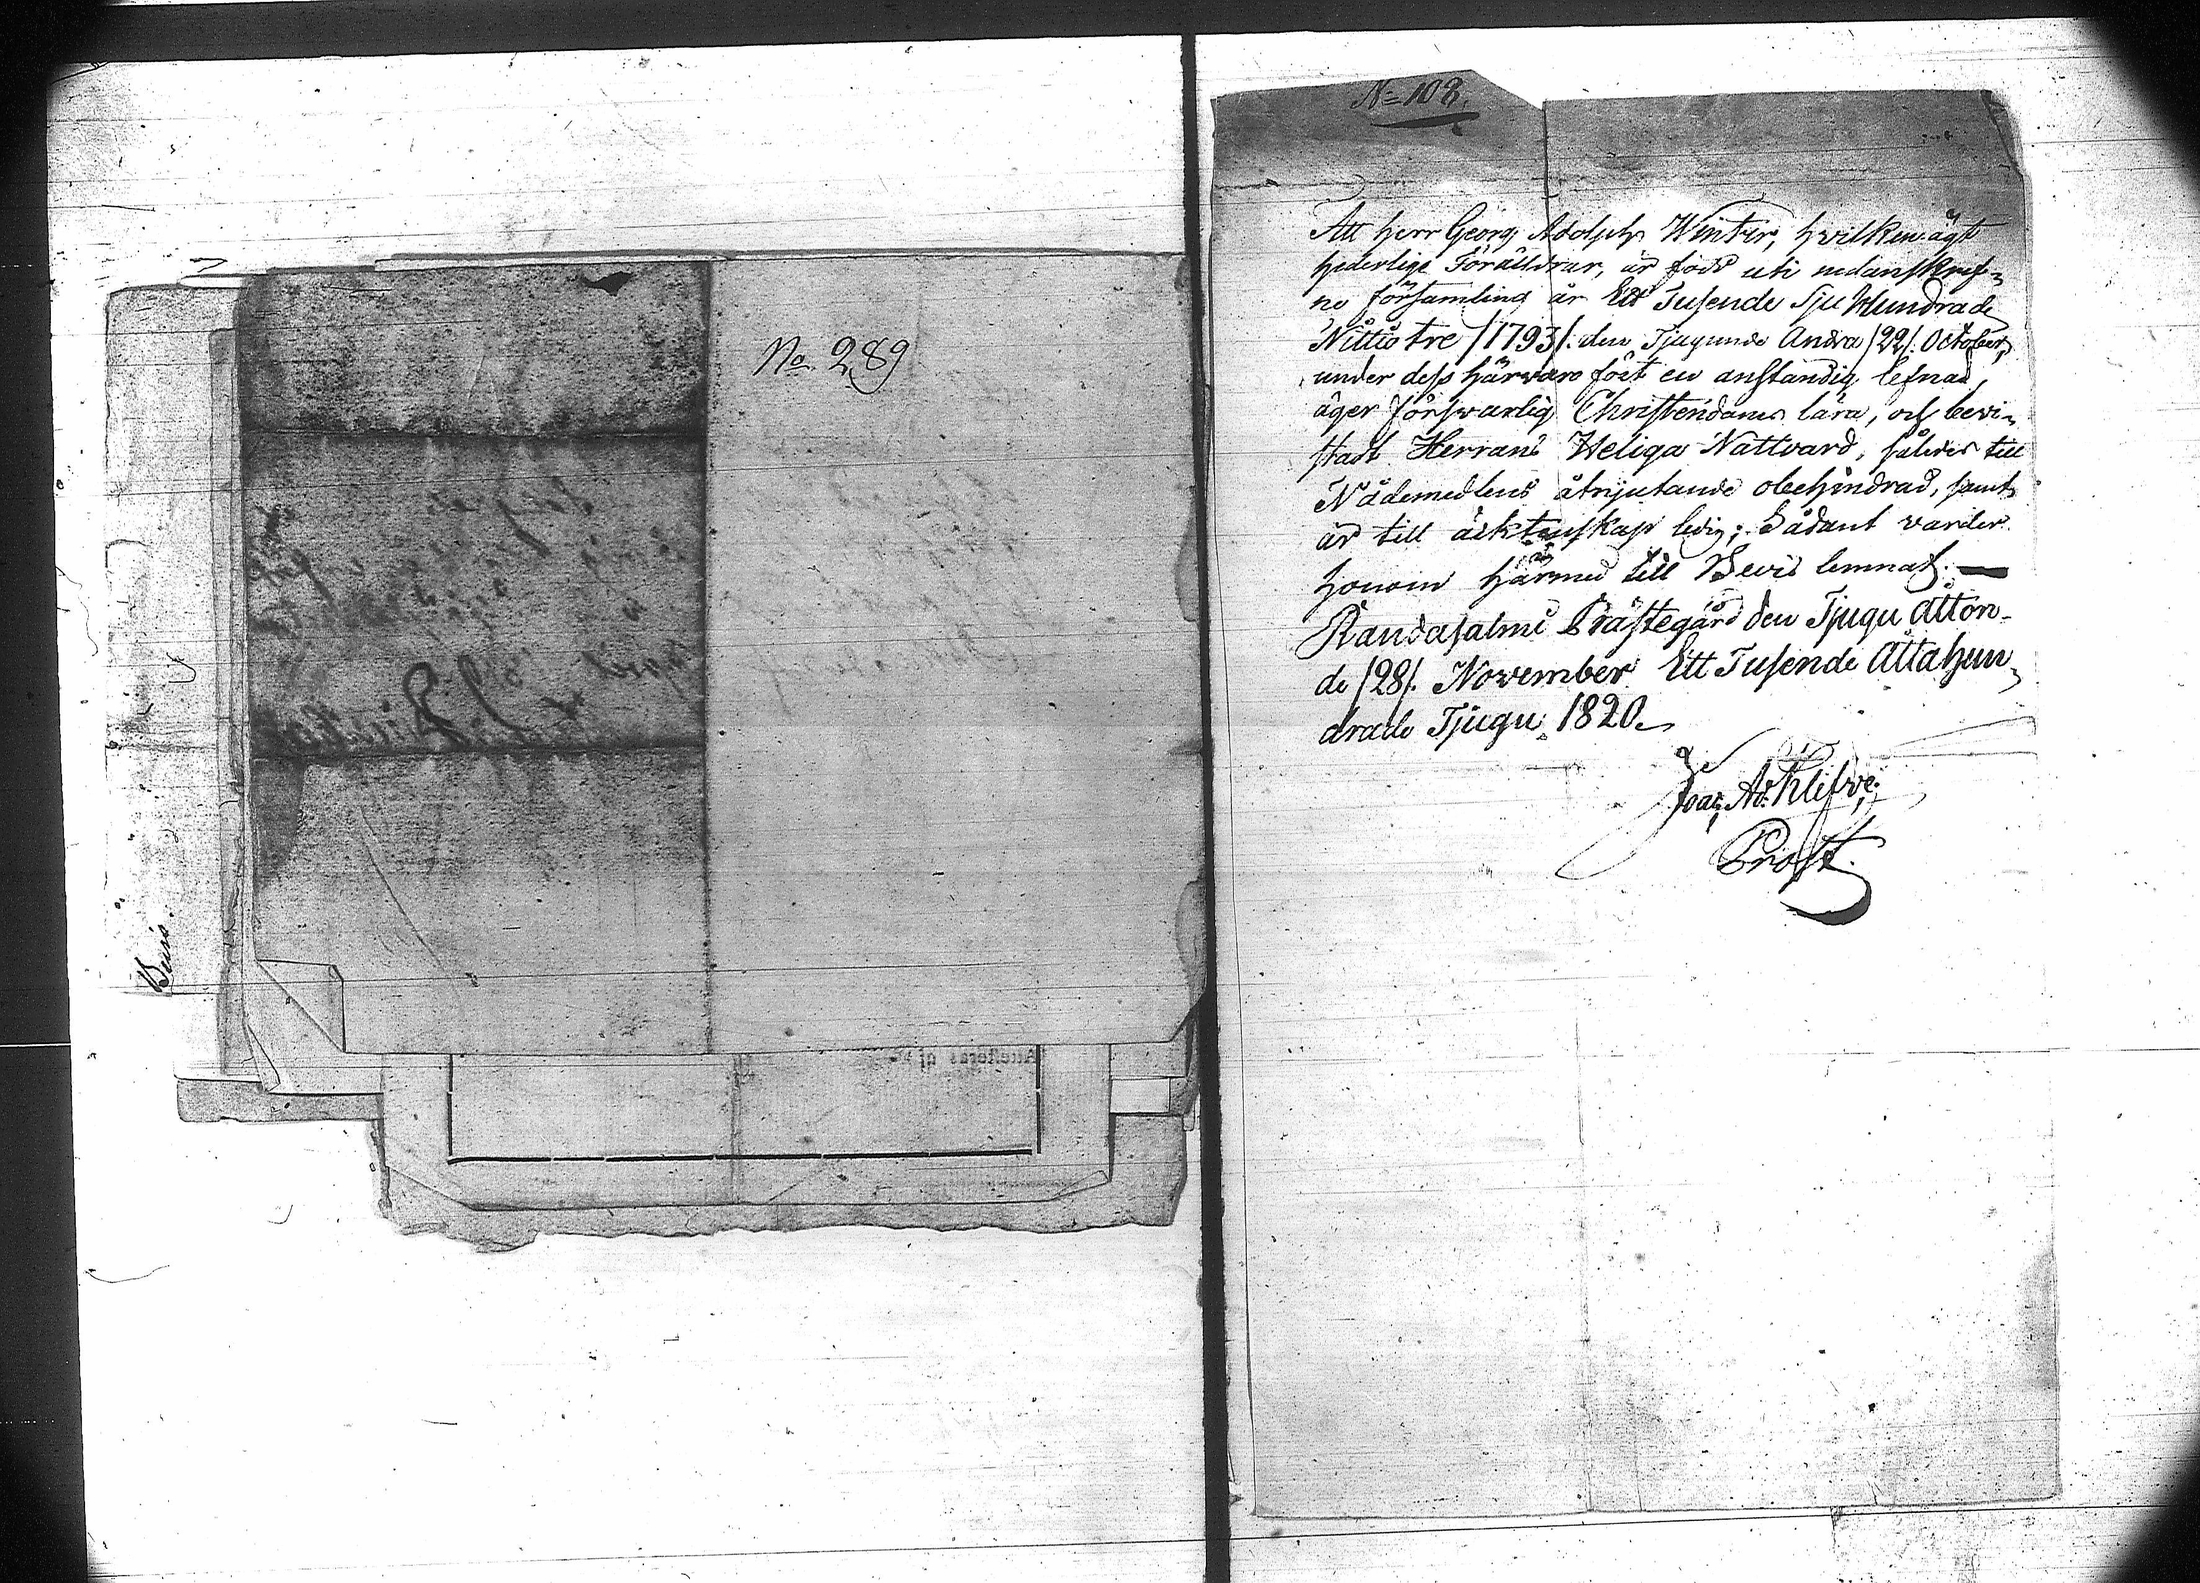 No 289
Bevis.
N= 108.
Att Herr Georg Adolph Winter, hvilken ägt
hederlige Föräldrar, är född uti nedanskref-
ne församling år Ett Tusende Sju Hundrade
Nittio tre /1793/. den Tjugunde Andra /22/. October,
under dess härvaro fört en anständig lefnad,
äger försvarlig Christendoms lära, och bevi-
stadt Herrans Heliga Nattvard, således till
Nådemedlens åtnjutande obehindrad, samt
är till äcktenskap ledig; Sådant varder
honom härmed till Bevis lemnat.
Randasalmi Prästegård den Tjugu Åtton-
de /28/. November Ett Tusende Åttahun-
drade Tjugu. 1820.
Joac. Ad.
Prost.